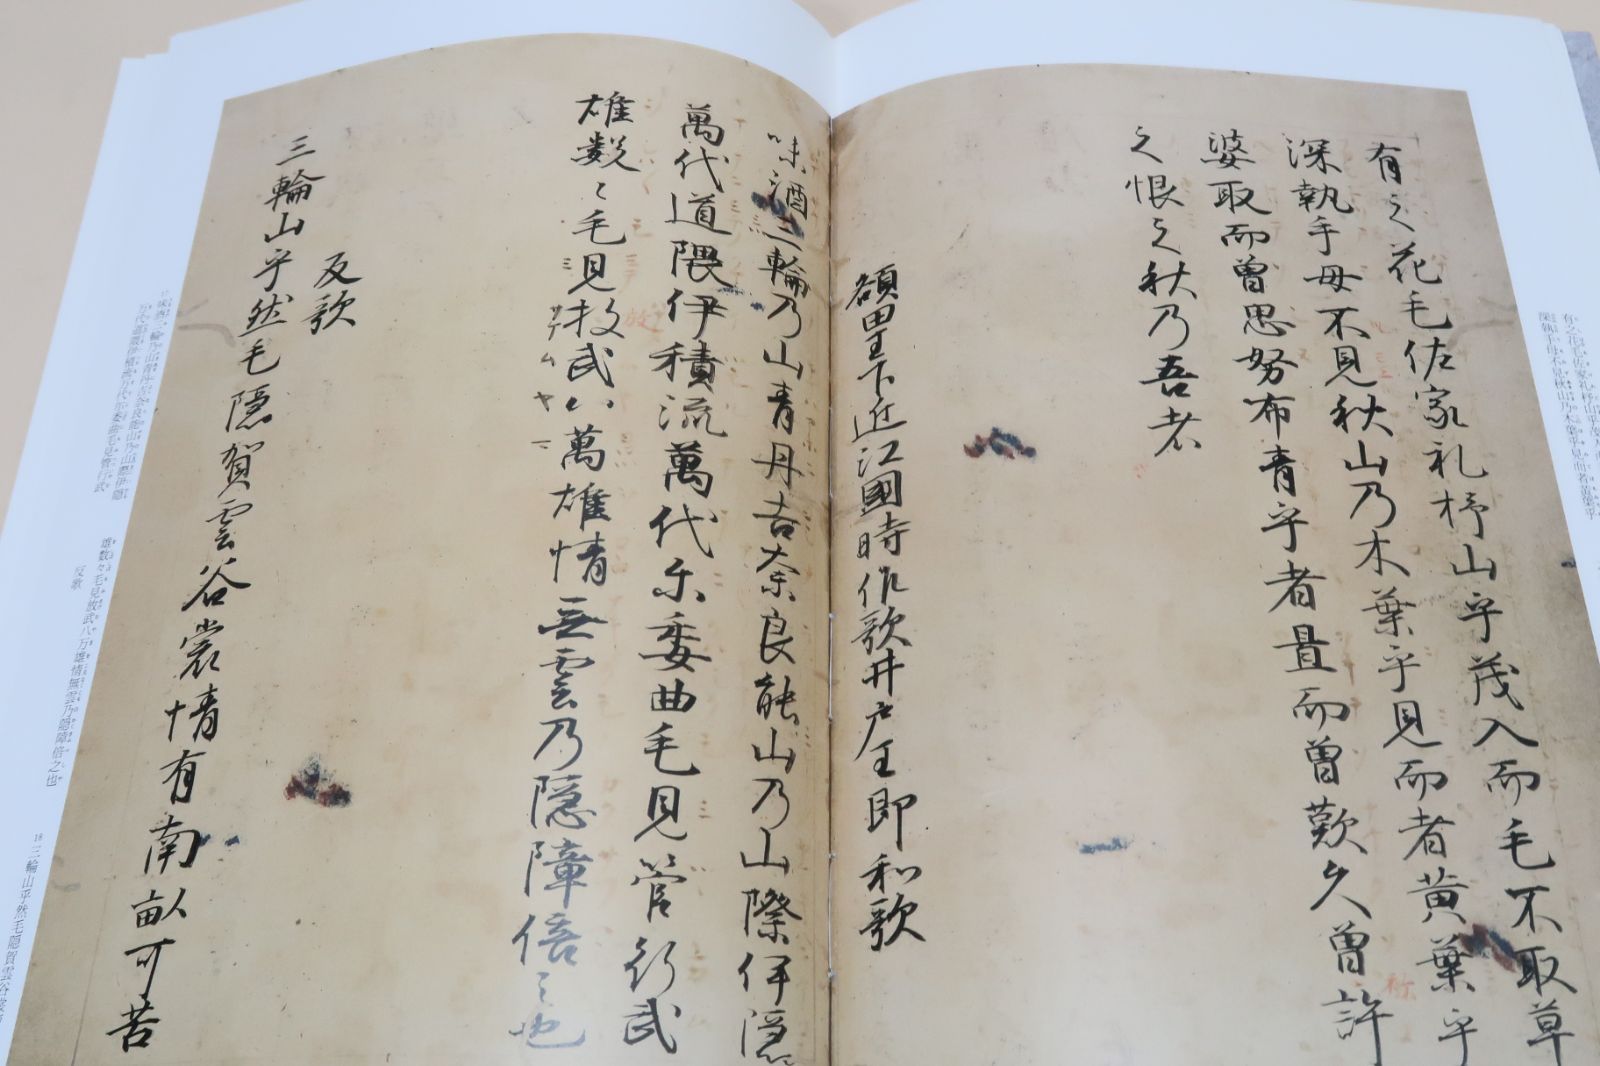 有之花毛佐家礼杼山乎茂入而毛不取草
深執手母不見秋山乃木葉乎見而者黄葉乎
婆取而曽思努布青乎者置而曽歎久曽許
之恨之秋乃吾者
額田王下近江國時作歌井戸王即和歌
味酒三輪乃山青丹吉奈良能山乃山際伊隠
萬代道隈伊積流萬代尓委曲毛見管行武
雄数〻毛見放武八萬雄情無雲乃隠障倍之也
反歌
三輪山乎然毛隠賀雲谷裳情有南畝可苦
有之花毛佐家礼杼山乎茂入而
深執手母不見秋山乃木葉乎見而者黄葉乎
雄数々毛見放武八万雄情無雲乃隠障倍之也
反歌
18 三輪山乎然毛隠賀雲谷裳